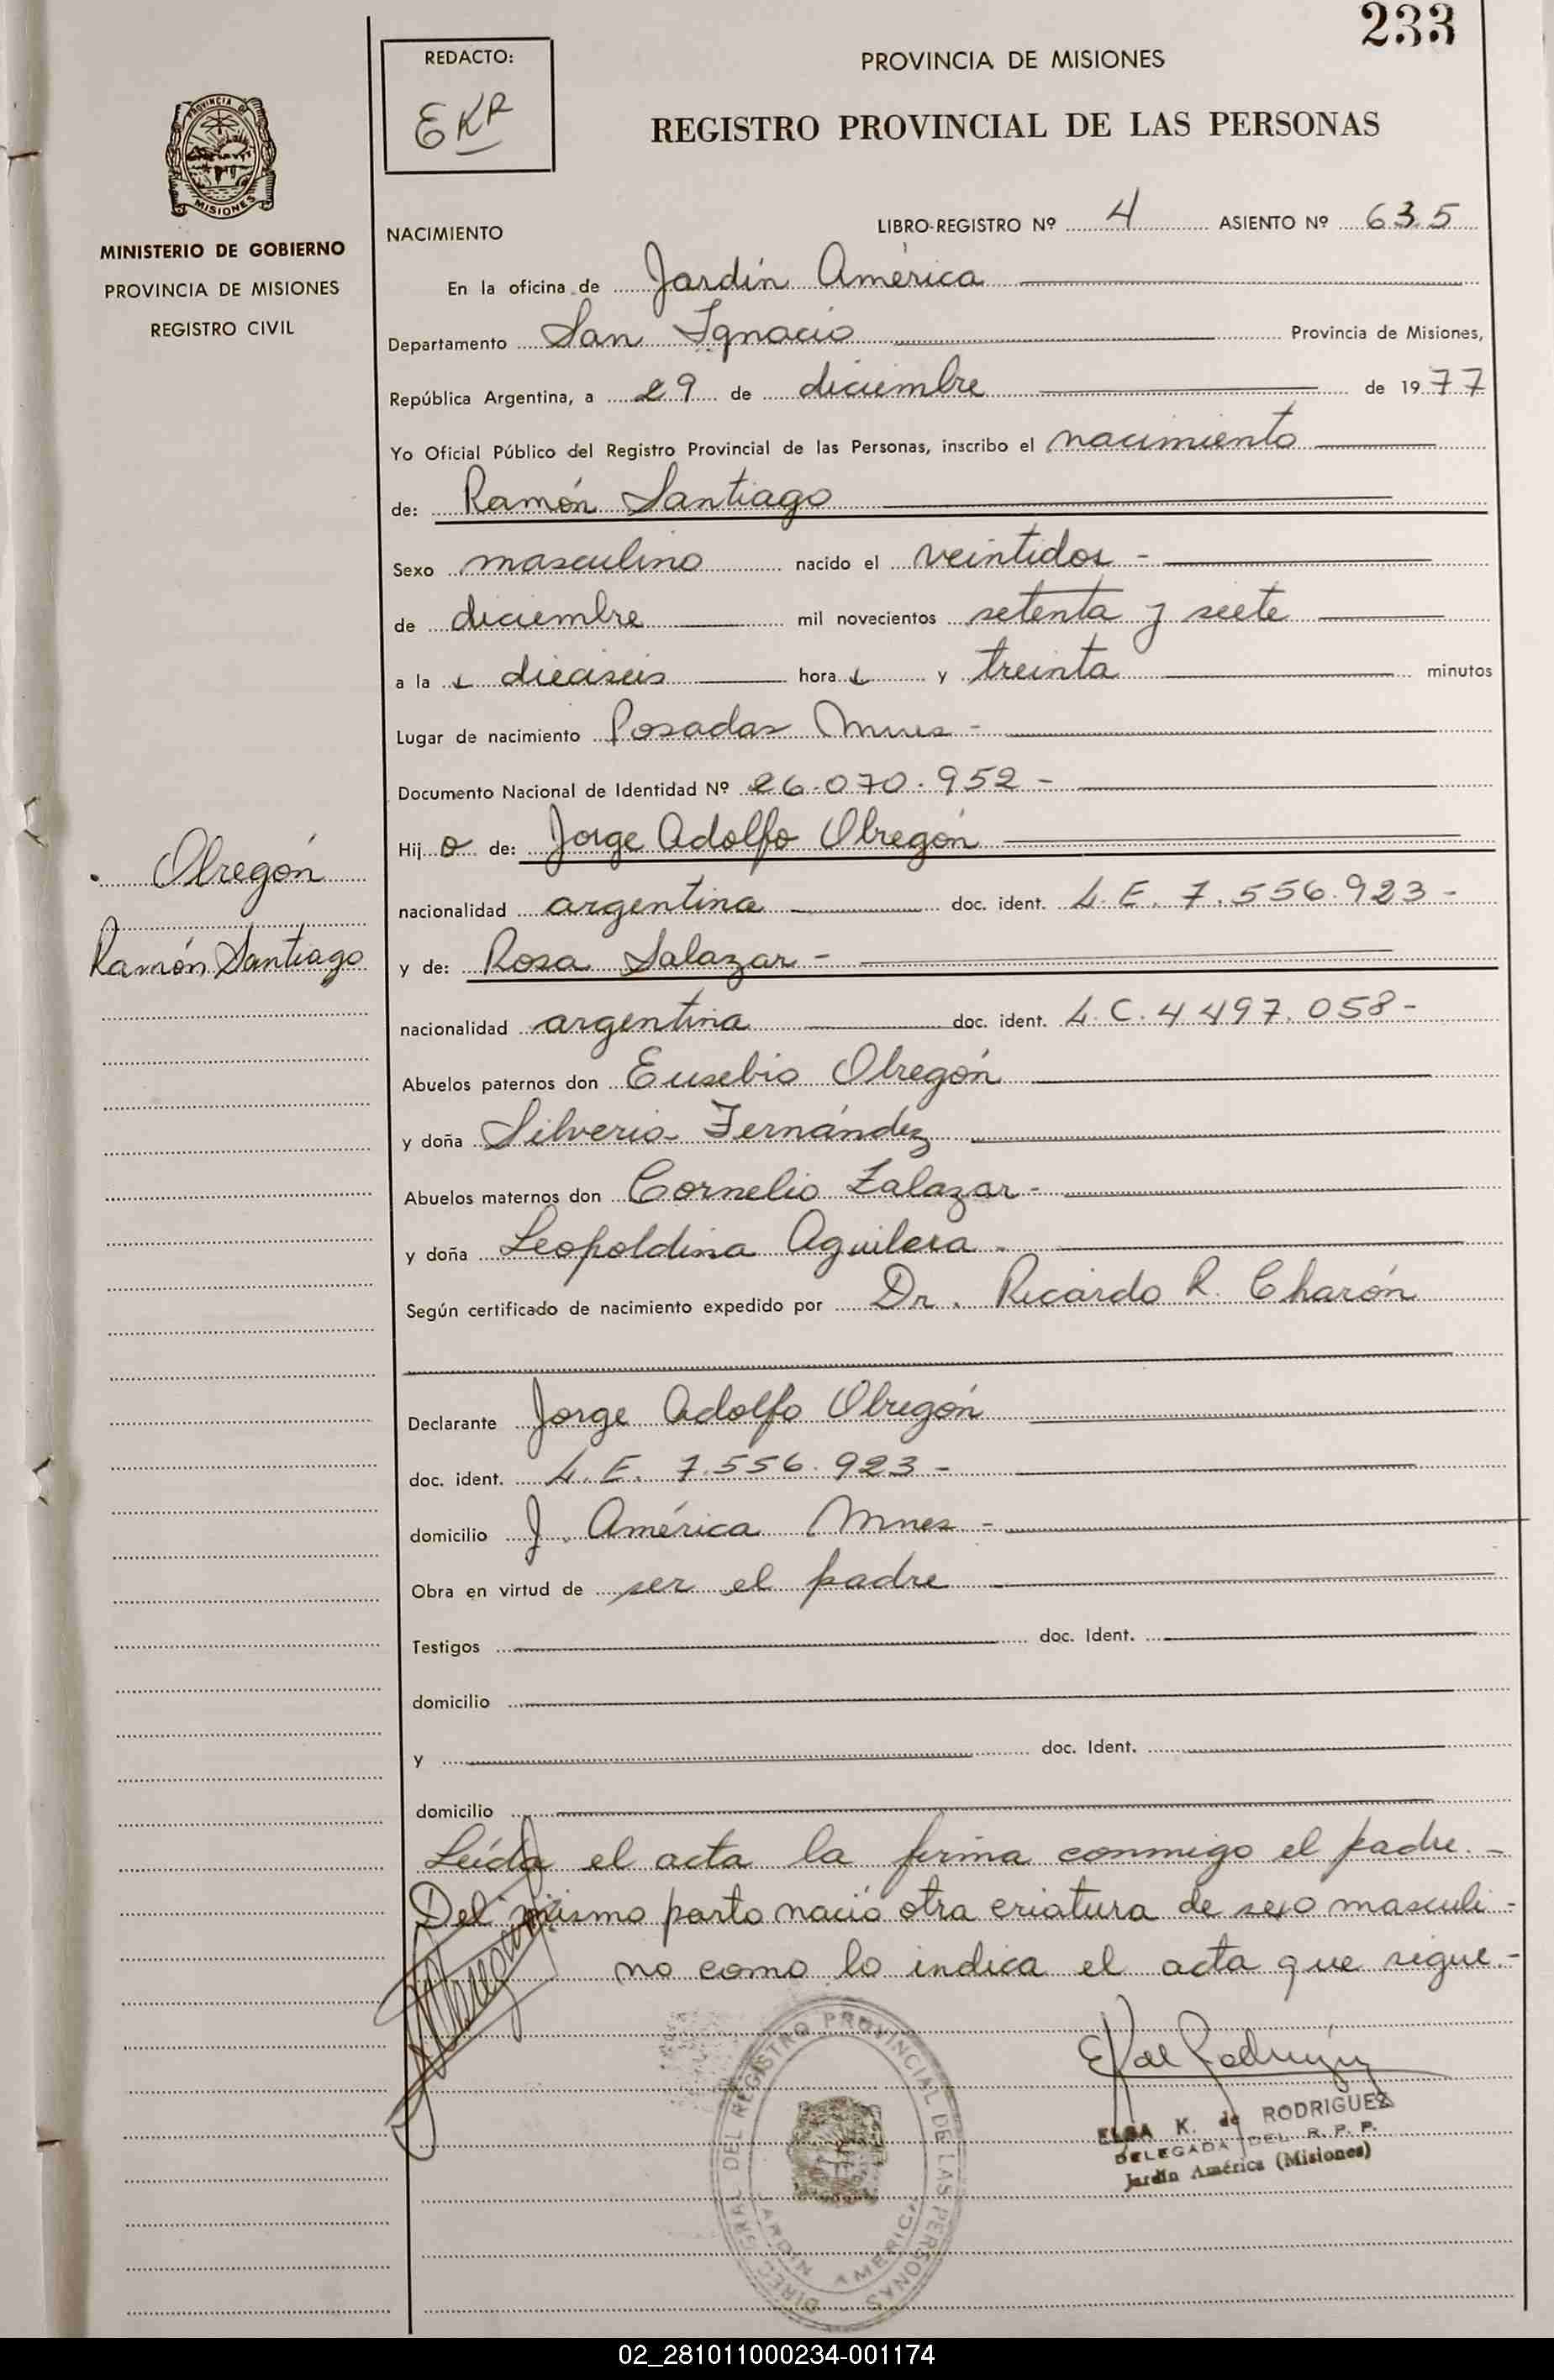 233
REDACTO:
EKR
PROVINCIA DE MISIONES
REGISTRO PROVINCIAL DE LAS PERSONAS
PROVINCIA DE
MISIONES
MINISTERIO DE GOBIERNO
PROVINCIA DE MISIONES
REGISTRO CIVIL
NACIMIENTO
LIBRO-REGISTRO Nº 4 ASIENTO Nº 635
En la oficina de Jardín América
Departamento San Ignacio Provincia de Misiones,
República Argentina, a 29 de diciembre de 1977
Yo Oficial Público del Registro Provincial de las Personas, inscribo el nacimiento
de: Ramón Santiago
Sexo masculino nacido el veintidos -
de diciembre mil novecientos setenta y siete
a la s dieciseis hora s y treinta minutos
Lugar de nacimiento Posadas Mnes -
Documento Nacional de Identidad Nº 26.070.952 -
Hij o de: Jorge Adolfo Obregón
nacionalidad argentina doc. ident. L.E. 7.556.923 -
y de: Rosa Salazar -
nacionalidad argentina doc. ident. L.C. 4 497.058 -
Abuelos paternos don Eusebio Obregón
y doña Silveria Fernández
Abuelos maternos don Cornelio Zalazar -
y doña Leopoldina Aguilera -
Según certificado de nacimiento expedido por Dr. Ricardo R. Charón
Declarante Jorge Adolfo Obregón
doc. ident. L.E. 7.556.923 -
domicilio J. América Mnes -
Obra en virtud de ser el padre
Testigos doc. Ident.
domicilio
y doc. Ident.
domicilio
Obregón
Ramón Santiago
Leída el acta la firma conmigo el padre. -
Del mismo parto nació otra criatura de sexo masculi-
no como lo indica el acta que sigue. -
JAObregón
EK de Rodriguez
ELSA K. de RODRIGUEZ
DELEGADA DEL R. P. P.
Jardín América (Misiones)
DIREC. GRAL. DEL REGISTRO PROVINCIAL DE LAS PERSONAS
JARDIN AMERICA
02_281011000234-001174